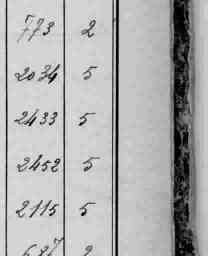 773 2
2034 5
2433 5
2452 5
2115 5